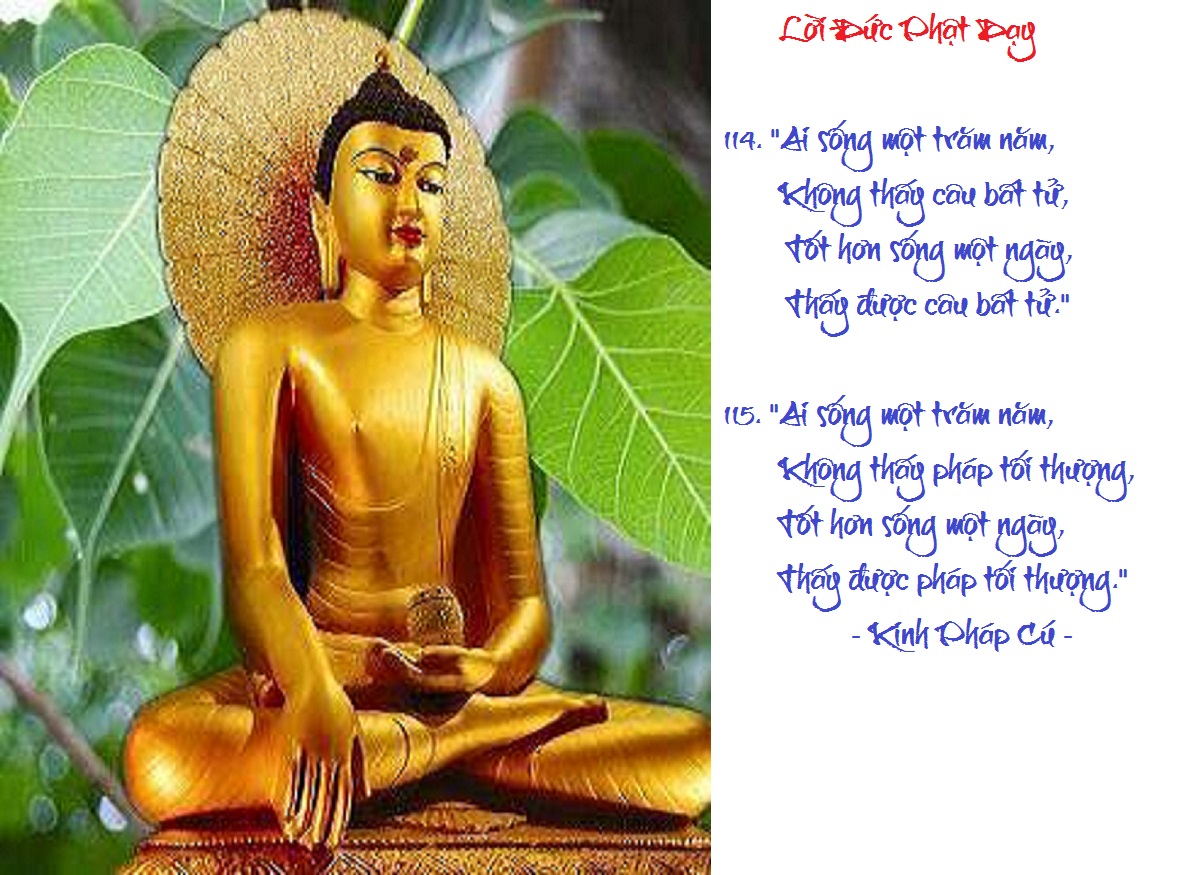 Lời Đức Phật Dạy
114. "Ai sống một trăm năm,
Không thấy câu bất tử,
Tốt hơn sống một ngày,
Thấy được câu bất tử."
115. "Ai sống một trăm năm,
Không thấy pháp tối thượng,
Tốt hơn sống một ngày,
Thấy được pháp tối thượng."
- Kinh Pháp Cú -